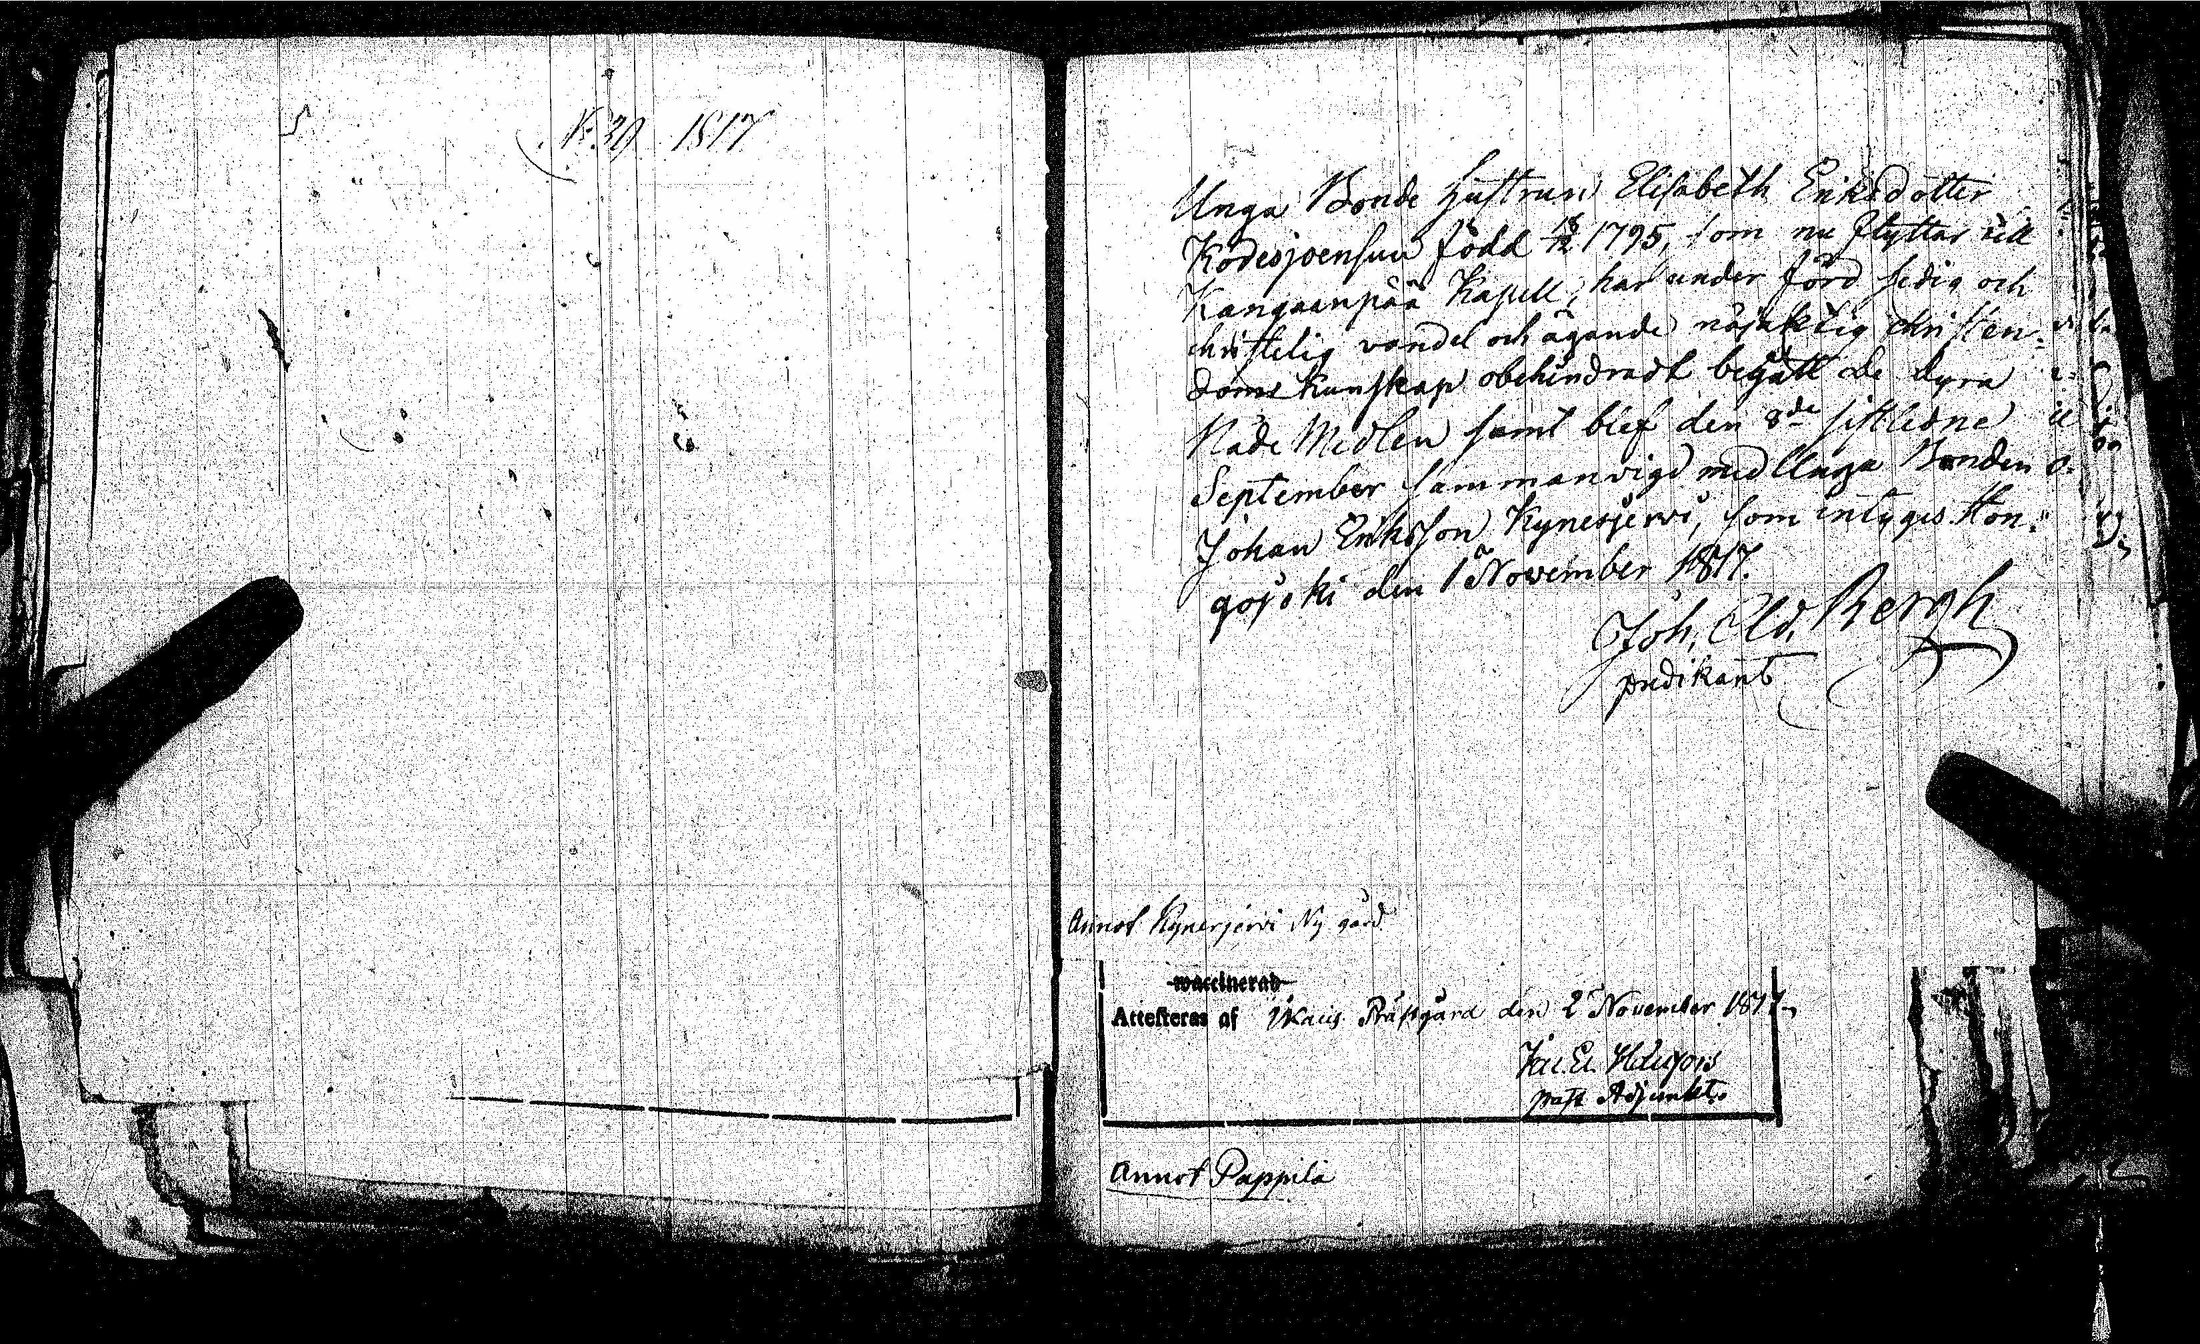 No 39 1817
Unga Bonde Hustrun Elisabeth Eriksdotter
Kodesjoensuu född 18/12 1795, som nu flyttar till
Kangaanpää Kapell, har under förd sedig och
christelig vandel och ägande nöjaktig christen=
doms kunskap obehindradt begått de dyra
Nåde Medlen samt blef den 8de sistledne
September sammanvigd med Unga Bonden
Johan Eriksson Kynesjervi, som intygas Hon=
gojoki den 1 November 1817.
Joh. Ad. Bergh
predikant
Annot Kynesjervi Ny gård
waccinerad
Attesteras af Ikalis Prästgård den 2 November 1817
Past Adjunkt.
Annot Pappila